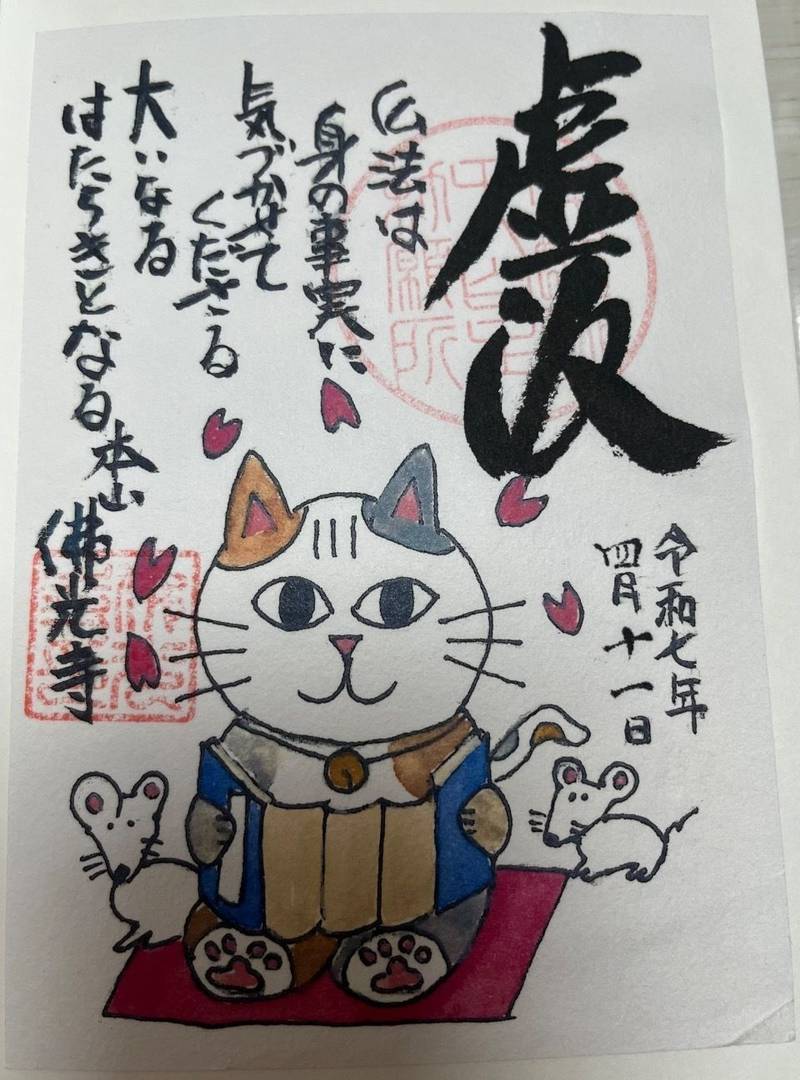 虚
令和七年
四月十一日
仏法は
身の事実に
気づかせて
くださる
大いなる
はたらきとなる
本山
佛光寺
勅願所